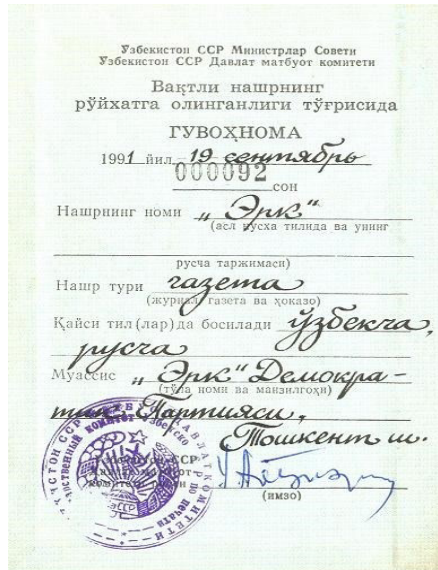 Узбекистон ССР Министрлар Совети
Узбекистон ССР Давлат матбуот комитети
Вақтли нашрнинг
рўйхатга олинганлиги тўғрисида
ГУВОҲНОМА
1991 йил 19 сентябрь
000092 сон
Нашрнинг номи „Эрк“
(асл нусха тилида ва унинг
русча таржимаси)
Нашр тури газета
(журнал, газета ва ҳоказо)
Қайси тил (лар) да босилади ўзбекча,
русча
Муассис „Эрк“ Демокра-
(тўла номи ва манзилгоҳи)
тик Партияси,
Тошкент ш.
ССР
(имзо)